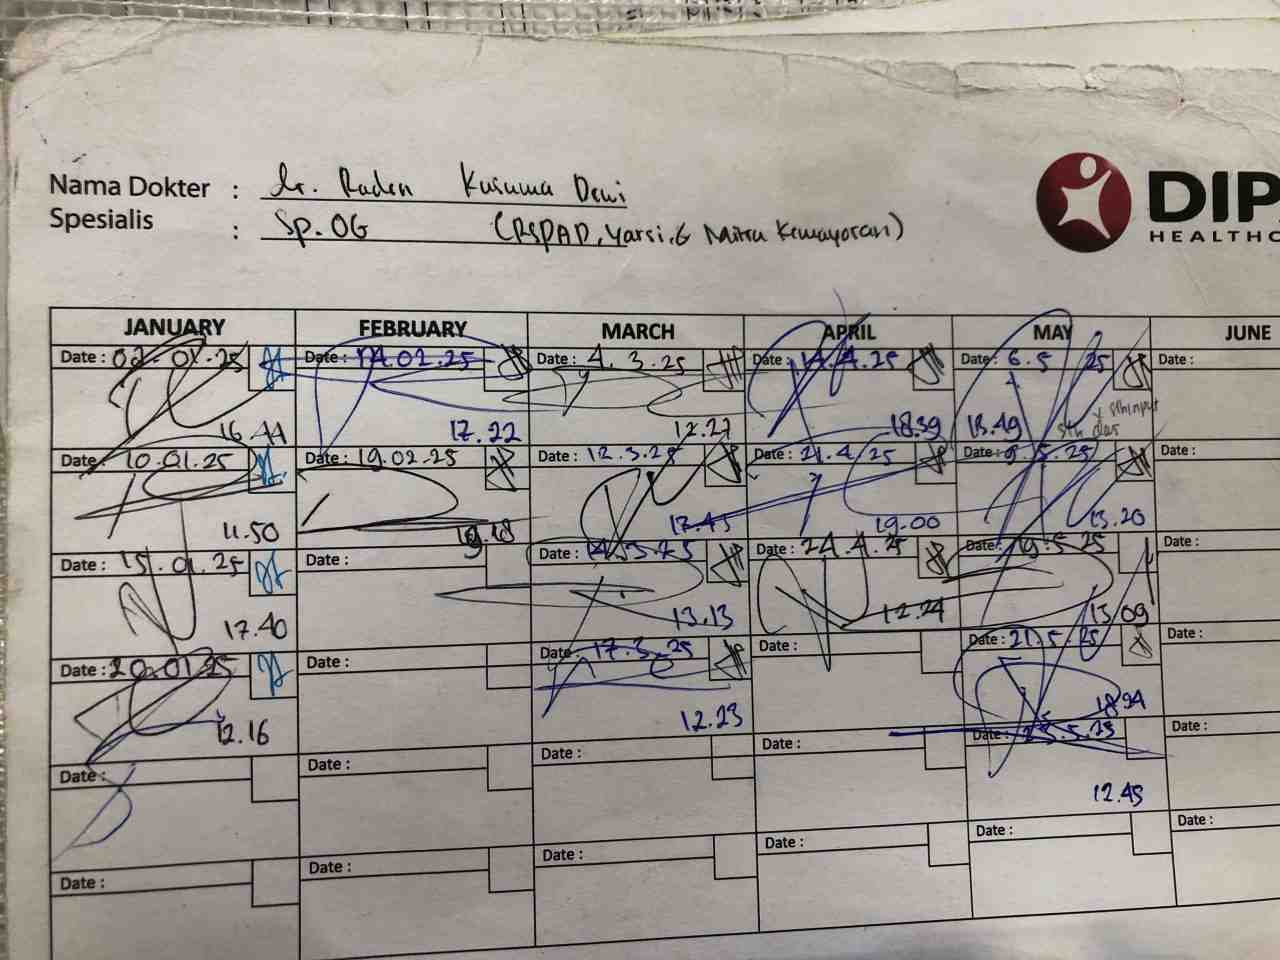 Nama Dokter : dr. Raden Kusuma Dewi
Spesialis : Sp.OG (RSPAD, Yarsi, & Mitra Kemayoran)
DIP
HEALTHC
JANUARY FEBRUARY MARCH APRIL MAY JUNE
Date : 02.01.25 Date : 14.02.25 Date : 4.3.25 Date : 14.4.25 Date : 6.5.25 Date :
16.44 17.22 12.27 18.39 13.49
Date : 10.01.25 Date : 19.02.25 Date : 12.3.25 Date : 21.4.25 Date : 9.5.25 Date :
11.50 19.18 17.45 19.00 13.20
Date : 15.01.25 Date : Date : 14.3.25 Date : 24.4.25 Date : 19.5.25 Date :
17.40 13.13 12.24 13.09
Date : 20.01.25 Date : Date : 17.3.25 Date : Date : 21.5.25 Date :
12.16 12.23
Date : Date : Date : Date : Date : Date :
12.45
Date : Date : Date : Date : Date : Date :